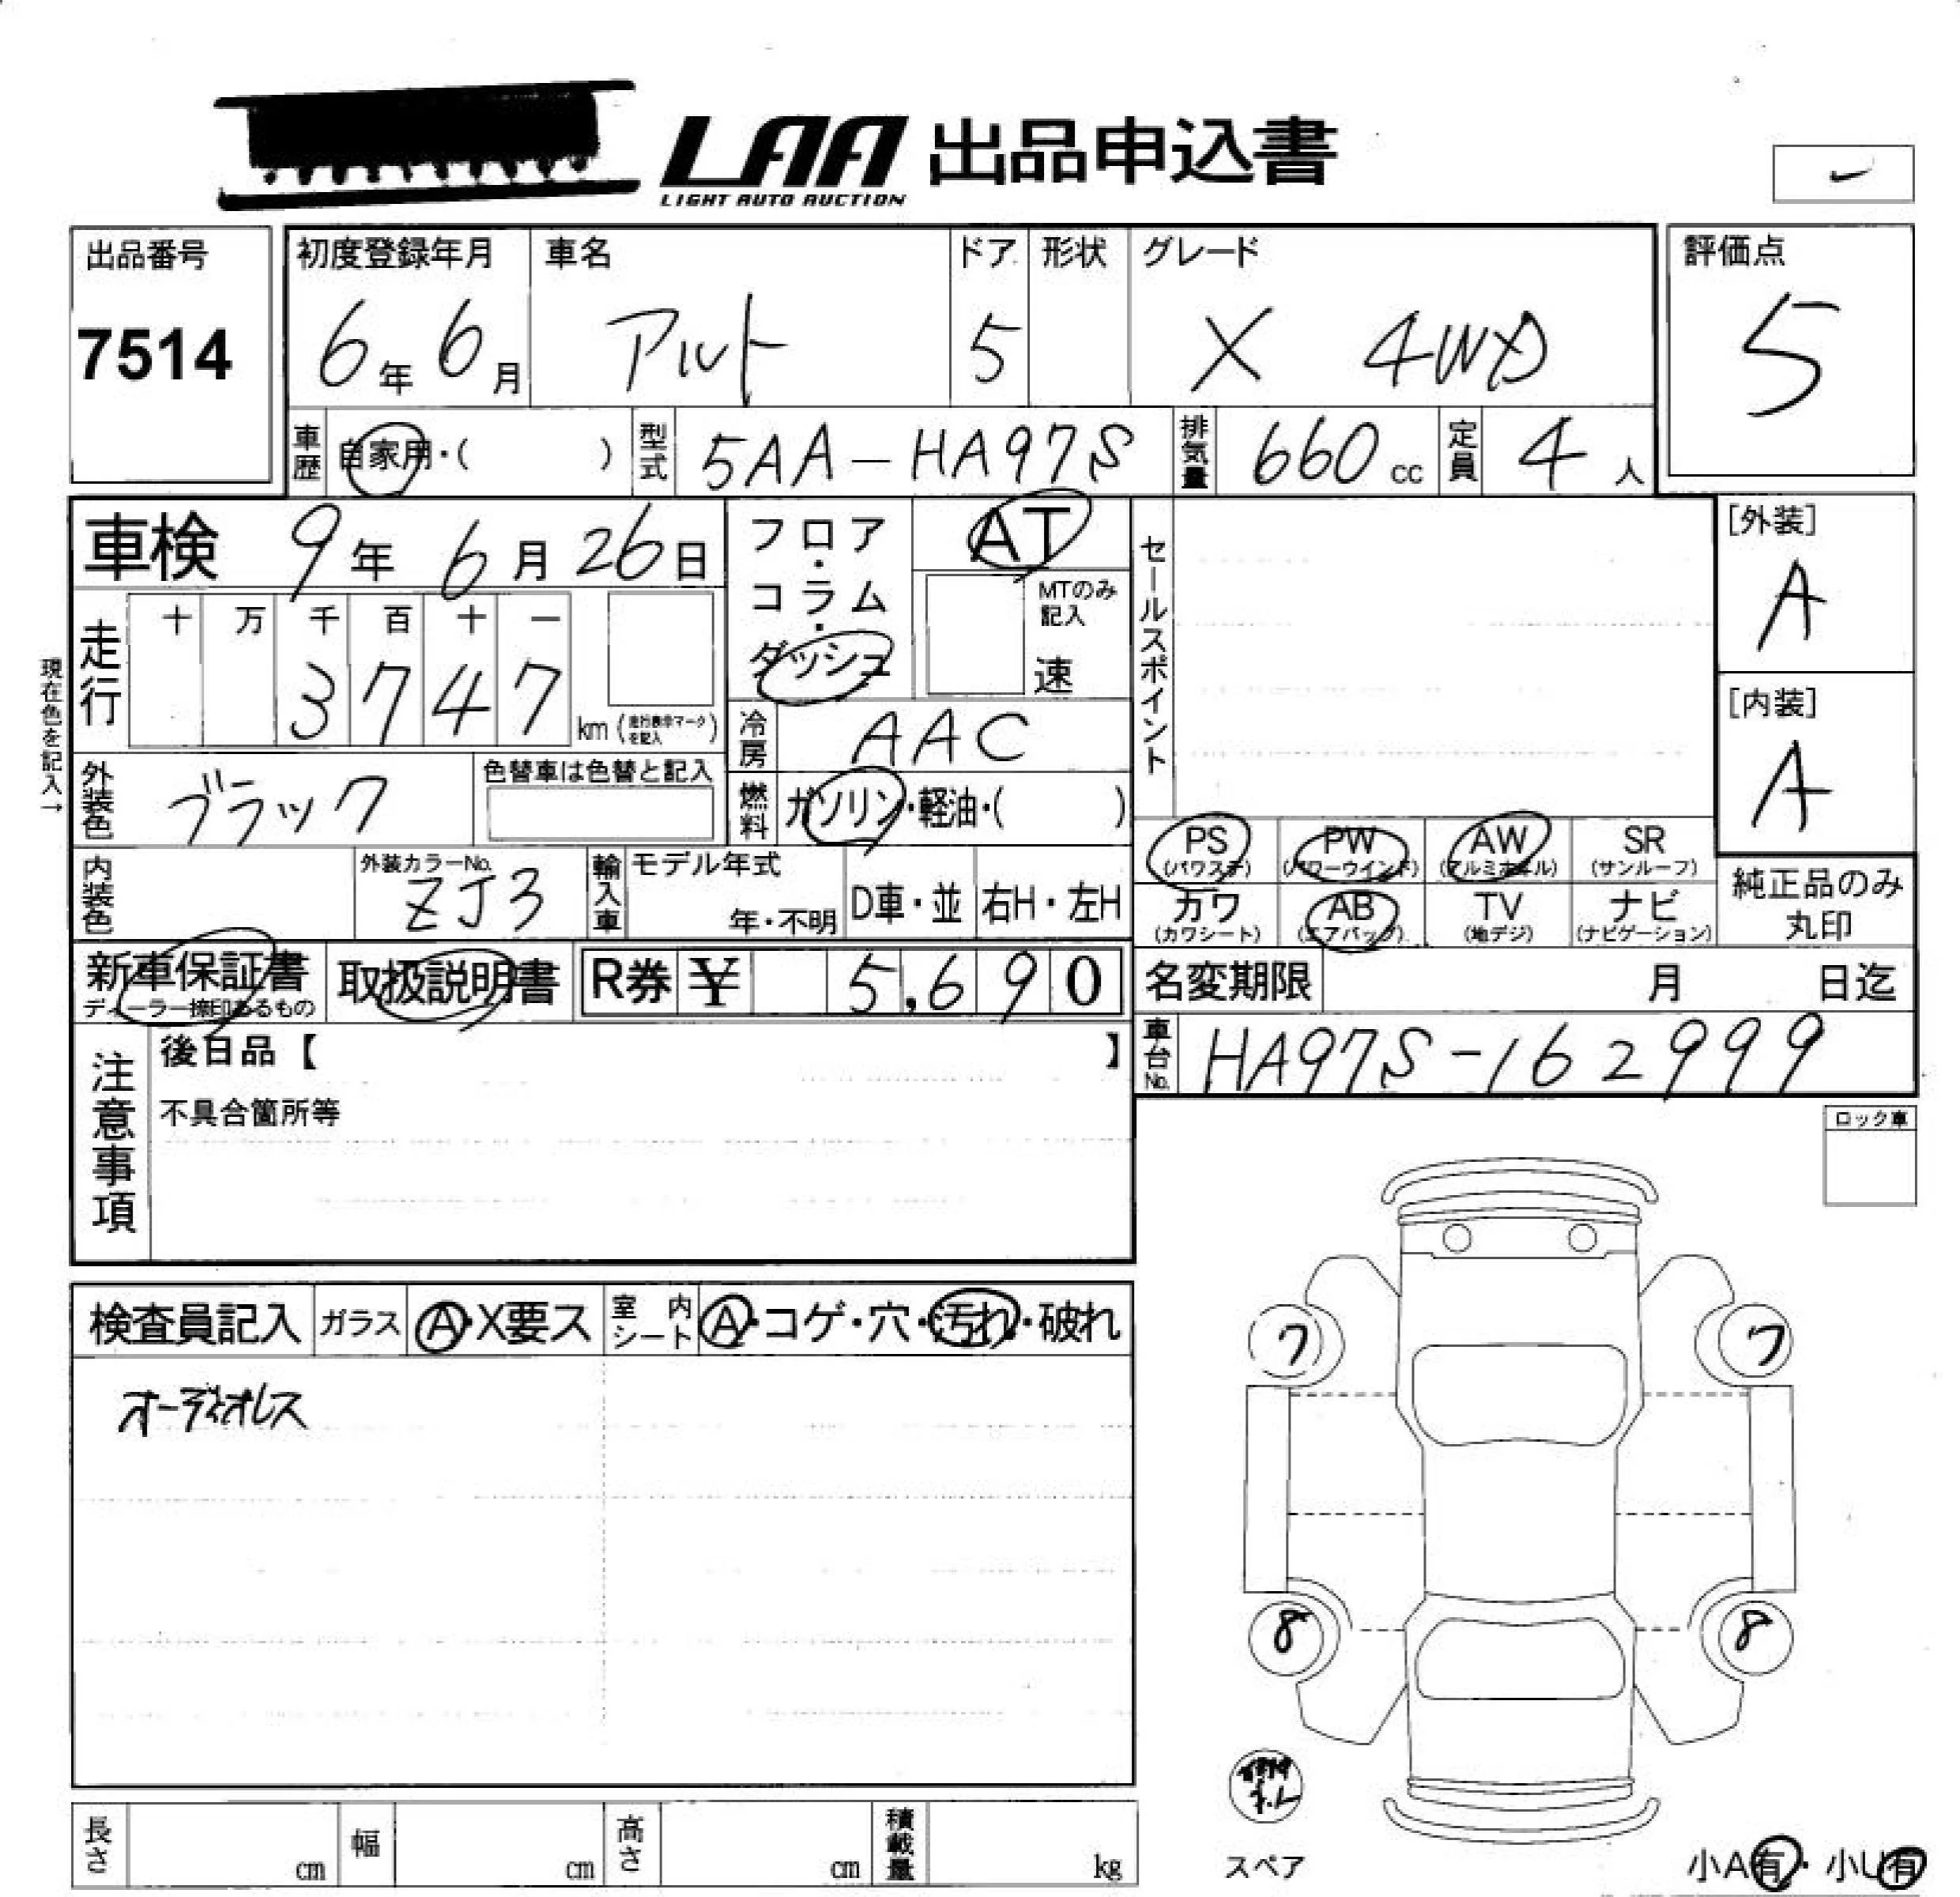 LAA 出品申込書
LIGHT AUTO AUCTION
出品番号
7514
初度登録年月
6年 6月
車名
アルト
ドア
5
形状
グレード
X 4WD
評価点
5
車歴
自家用・( )
型式
5AA-HA97S
排気量
660 cc
定員
4 人
車検 9年 6月 26日
フロア・コラム・ダッシュ
AT
MTのみ記入
速
セールスポイント
[外装]
A
[内装]
A
現在色を記入→
走行
十 万 千 百 十 一
3 7 4 7
km (走行表中マークを記入)
冷房
AAC
外装色
ブラック
色替車は色替と記入
燃料
ガソリン・軽油・( )
PS (パワステ)
PW (パワーウインド)
AW (アルミホイル)
SR (サンルーフ)
カワ (カワシート)
AB (エアバッグ)
TV (地デジ)
ナビ (ナビゲーション)
純正品のみ
丸印
内装色
外装カラーNo.
ZJ3
輸入車
モデル年式
年・不明
D車・並
右H・左H
新車保証書
ディーラー捺印あるもの
取扱説明書
R券 ¥ 5,690
名変期限 月 日迄
車台No.
HA97S-162999
注意事項
後日品【 】
不具合箇所等
ロック車
検査員記入
ガラス
A・X要ス
室内シート
A・コゲ・穴・汚れ・破れ
オーディオレス
7 7
8 8
スペア
長さ cm
幅 cm
高さ cm
積載量 kg
小A有・小U有